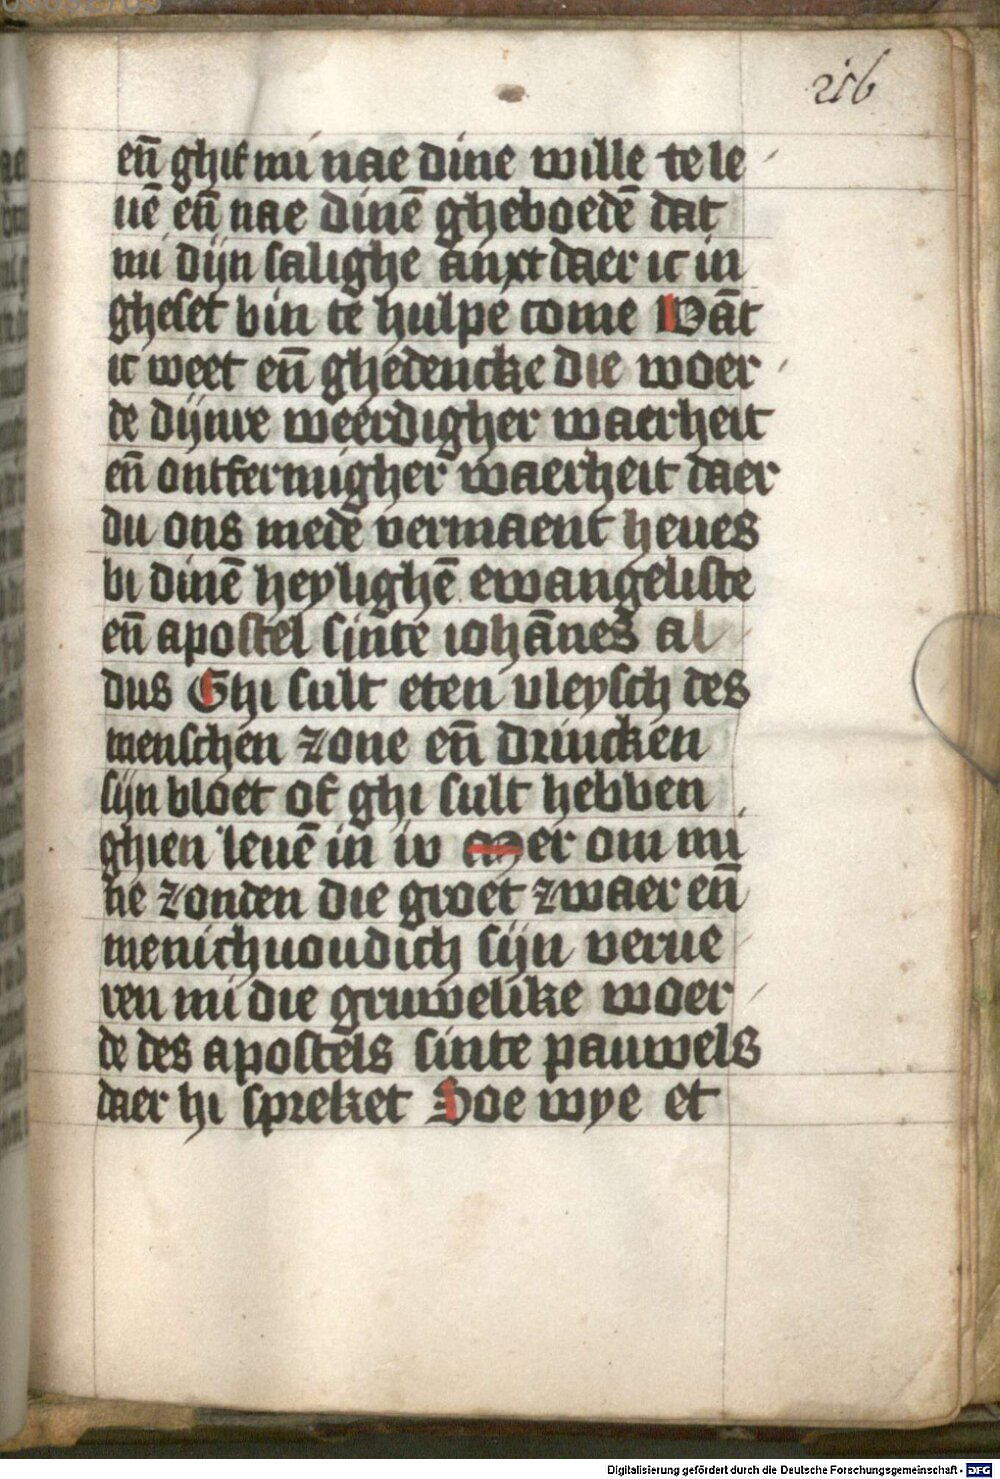 216
en̄ ghif mi nae dine wille te le
uē en̄ nae dinē gheboedē dat
mi dijn salighe anxt daer ic in
gheset bin te hulpe come Wāt
ic weet en̄ ghedencke die woer
de dijnre weerdigher waerheit
en̄ ontfermigher waerheit daer
du ons mede vermaent heues
bi dinē heylighē ewangeliste
en̄ apostel sinte iohānes al
dus Ghi sult eten vleysch des
menschen zone en̄ drincken
sijn bloet of ghi sult hebben
ghien leuē in iv Mer om mi
ne zonden die groet zwaer en̄
menichuoudich sijn verue
ren mi die gruwelike woer
de des apostels sinte pauwels
daer hi spreket Soe wye et
Digitalisierung gefördert durch die Deutsche Forschungsgemeinschaft - DFG